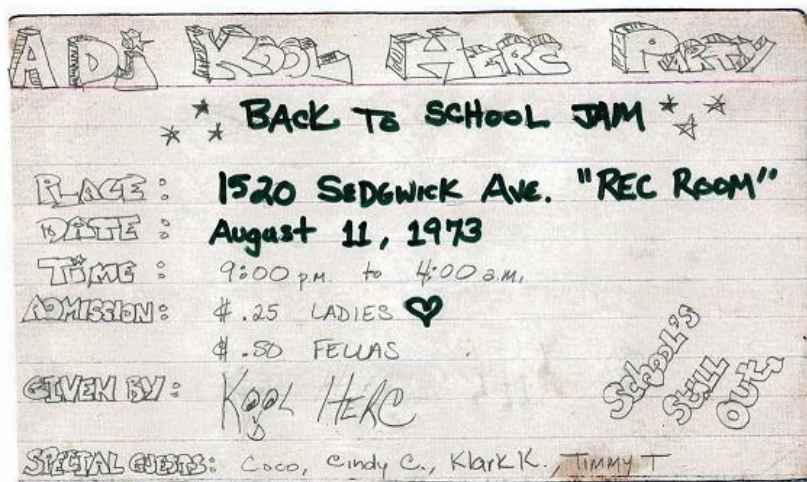 A DJ KOOL HERC PARTY
BACK TO SCHOOL JAM
PLACE: 1520 SEDGWICK AVE. "REC ROOM"
DATE: August 11, 1973
TIME: 9:00 p.m. to 4:00 a.m.
ADMISSION: $.25 LADIES
$.50 FELLAS
GIVEN BY: KOOL HERC
SPECIAL GUESTS: Coco, Cindy C., Klark K., TIMMY T
School's
Still
Out